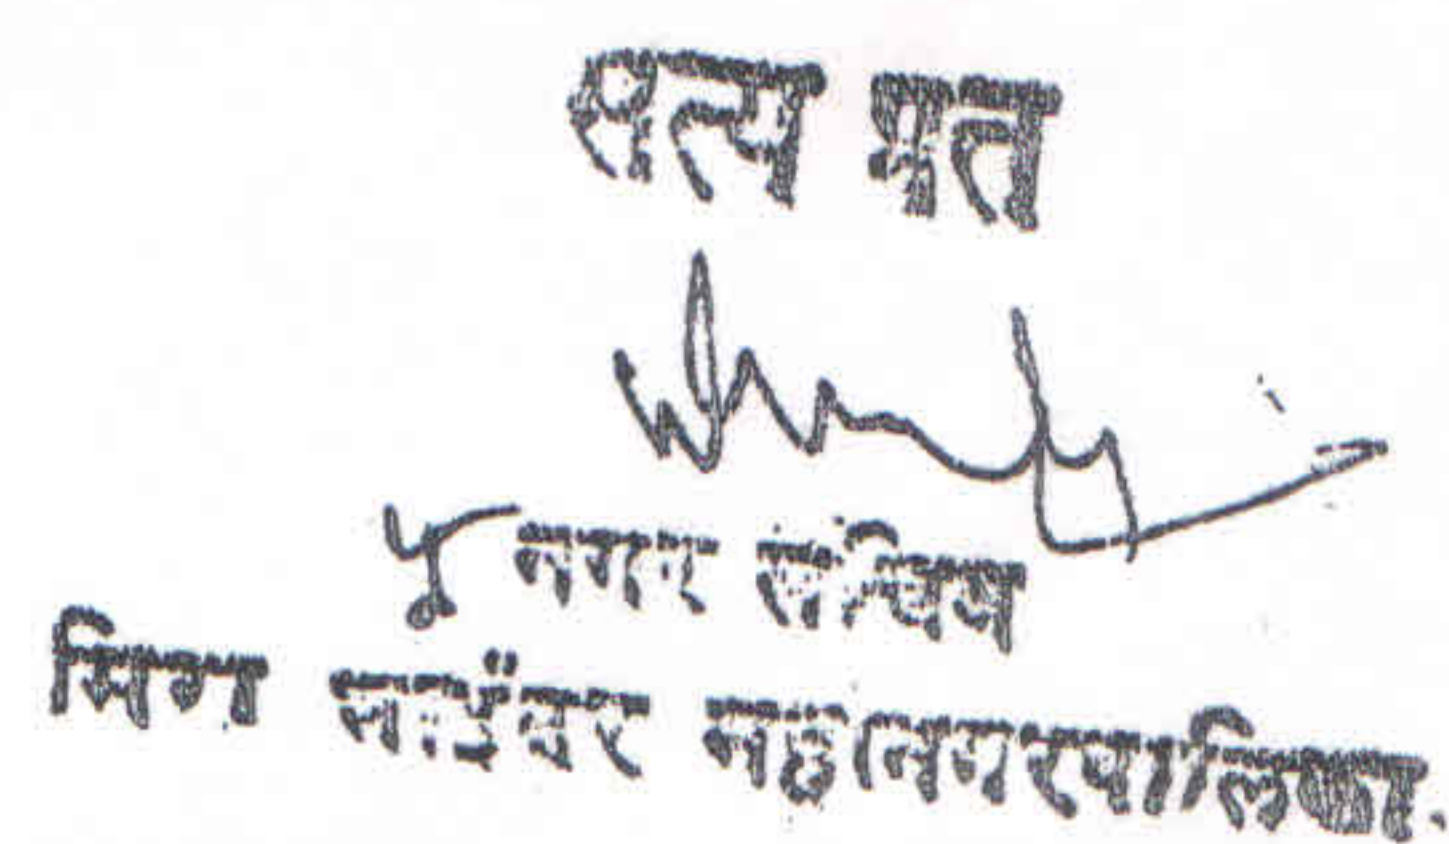 सत्य प्रत
नगर सचिव
मिरा भाईंदर महानगरपालिका.